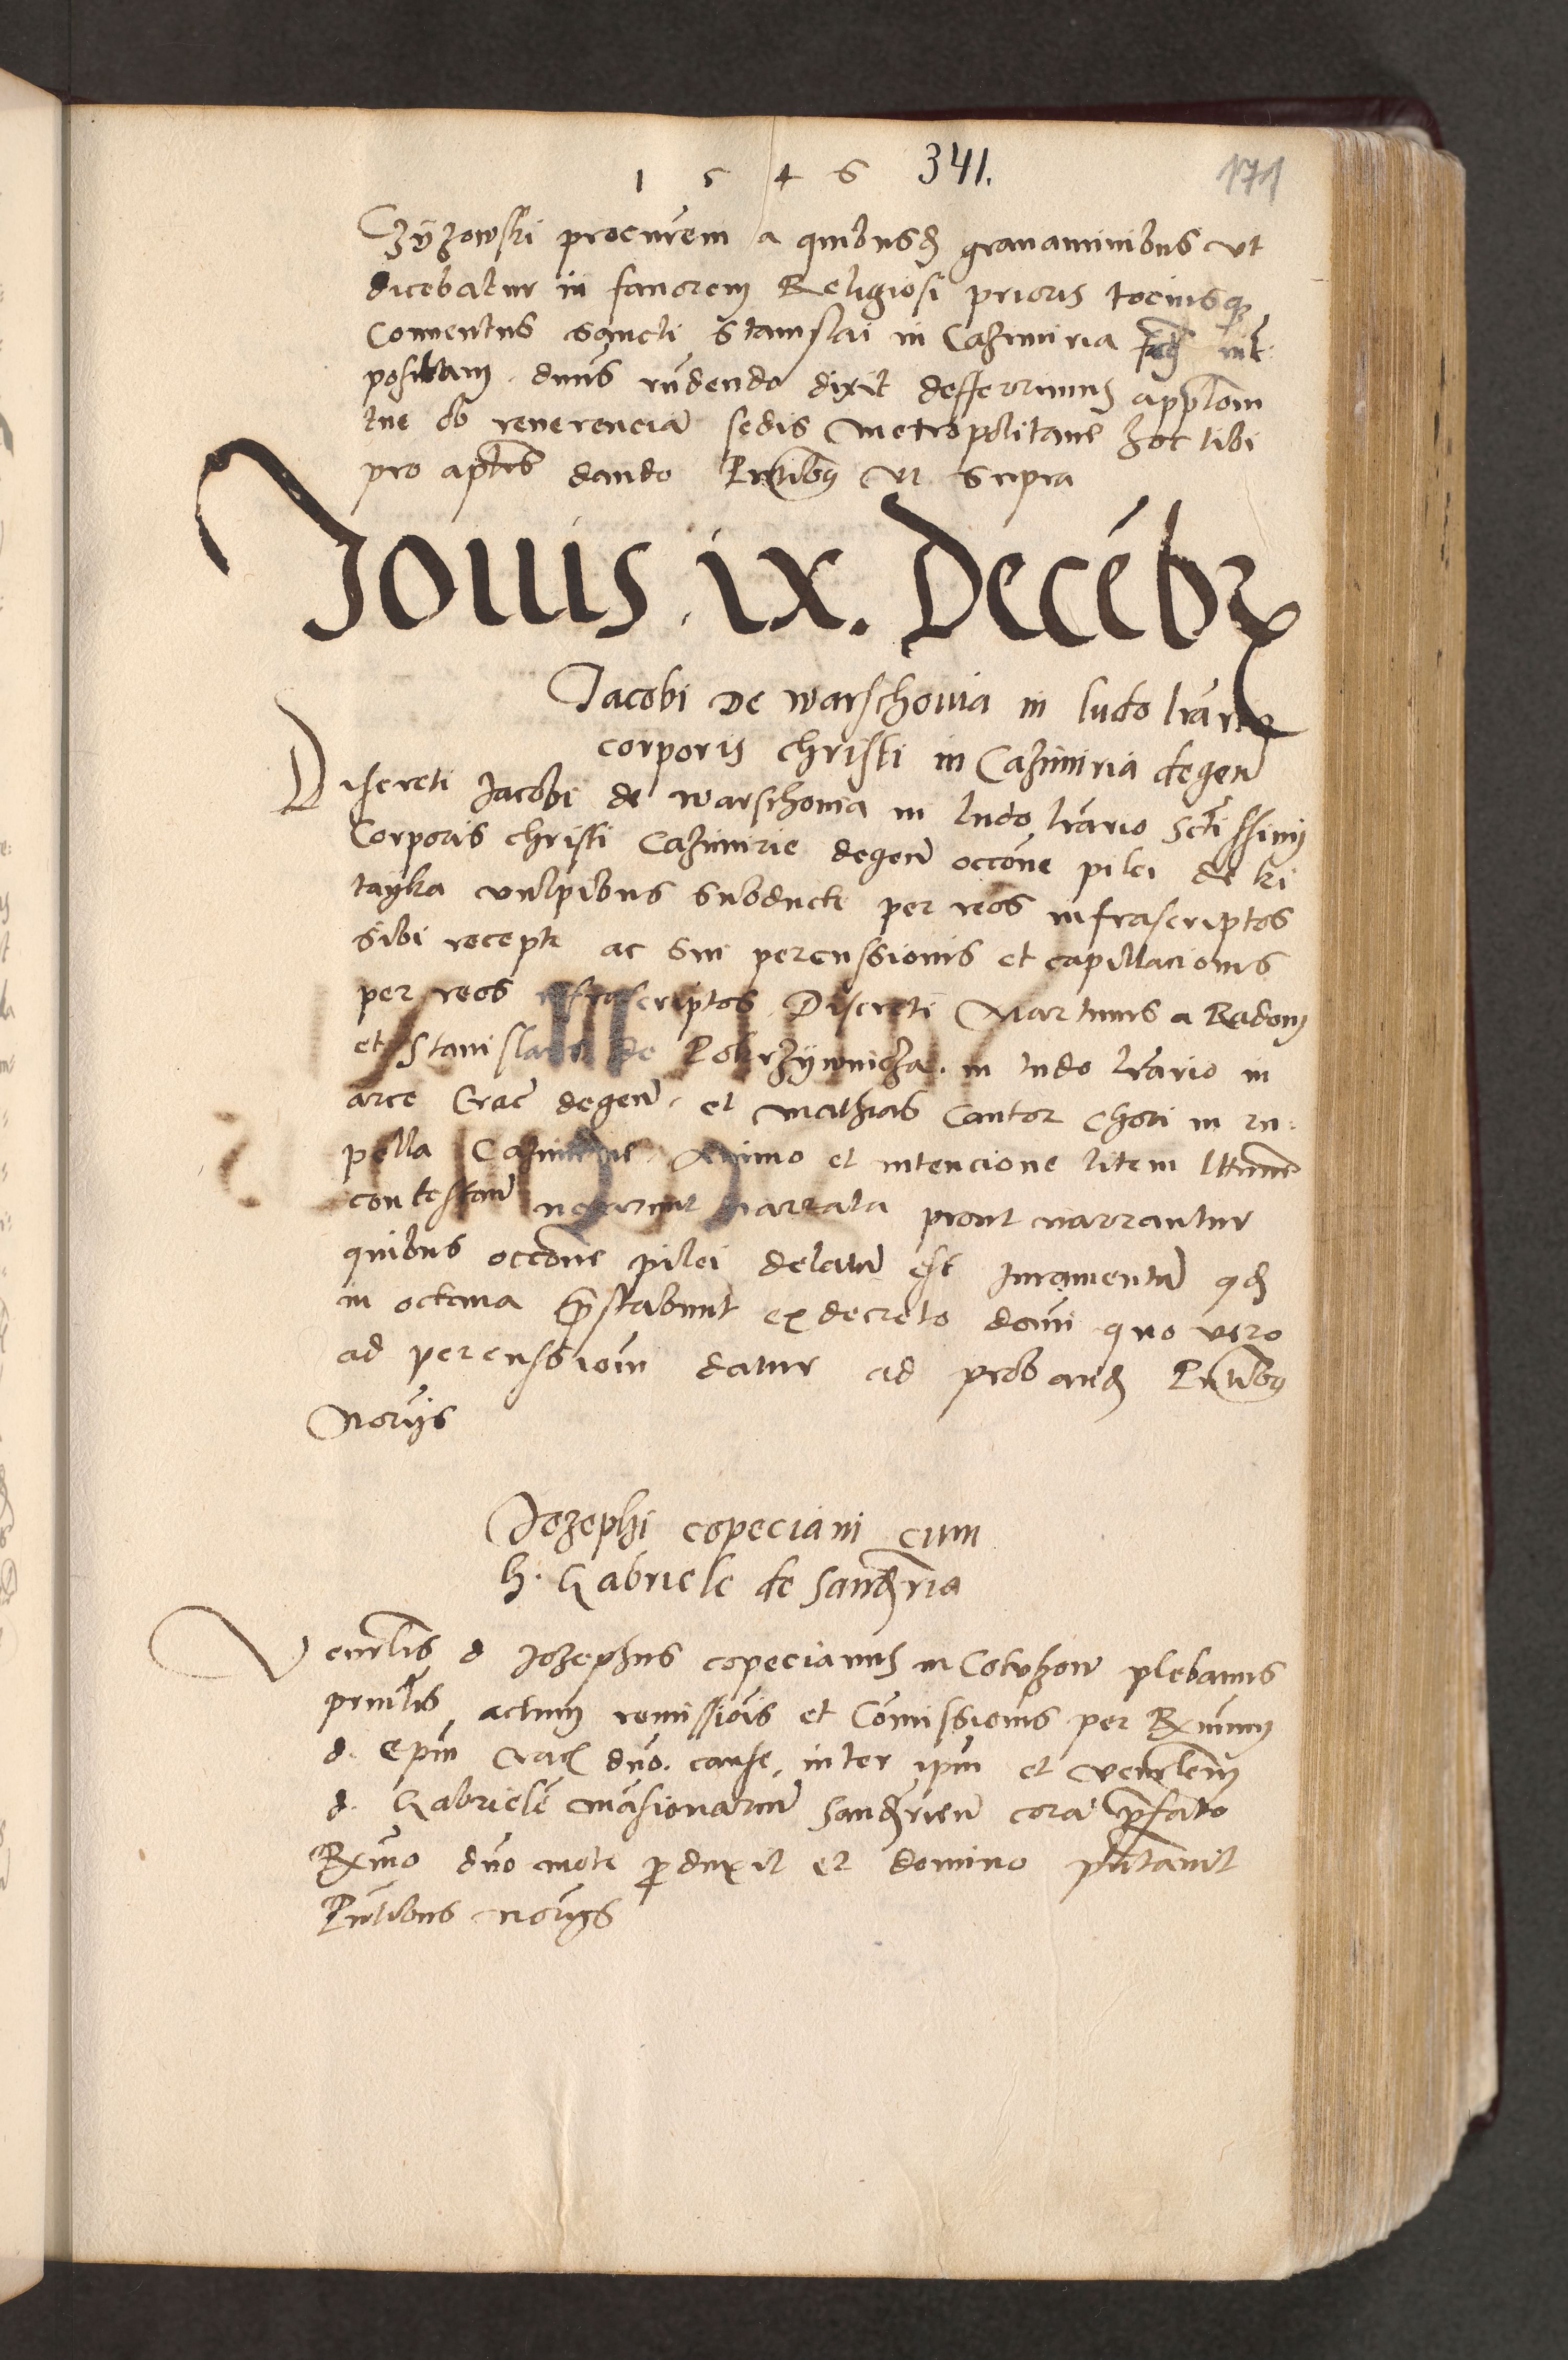 1 5 4 6 341. 171
Czÿzowski procurem a quibusdz grauaminibus vt
dicebatur in fauorem Religiosi prioris tociusqz
Conuentus sancti Stanislai in Cazimiria int
positam dnus rñdendo dixit defferimus applõm
tue ob reuerenciã sedis metropolitane hoc tibi
pro aptis dando Pñtibus vt supra
Jouis . ix . Decẽbr
Jacobi de warschouia in ludo lrario
corporis christi in Cazimiria degeñ
Discreti Jacobi de warschouia in ludo lrario Sctissimi
Corporis christi Cazimirie degeñ occõne pilei de ki
tayka vulpibus subducti per reos infrascriptos
sibi recepti ac sui percussionis et capillacionis
per reos infrascriptos Discreti Martinus a Radom
et Stanislaus de Pokrzÿwnicza in ludo lrario in
arce Crac degeñ et Mathias Cantor Chori in ru:
pella Cazimirie Animo et intencione litem
contestañ negarunt narrata prout narrantur
quibus occõne pilei delatũ est iuramentũ qdz
in octaua prestabunt ex decreto domi quo vero
ad percussiom datur ad proband Pñtibus
Noryjs
Jozephi copeciani cum
h. Gabriele de Sandria
Venrlis d Jozephus copecianus in Cotuhow plebanus
prinlis actum remissiõis et Cõmissionis per Rximum
d. Epm Crac dno. cause inter ipm et venrlem
d. Gabrielẽ mãsionariũ Sandrieñ corã prefato
Rximo dno mote produxit et domino pñtauit
Pñtibus Noryjs